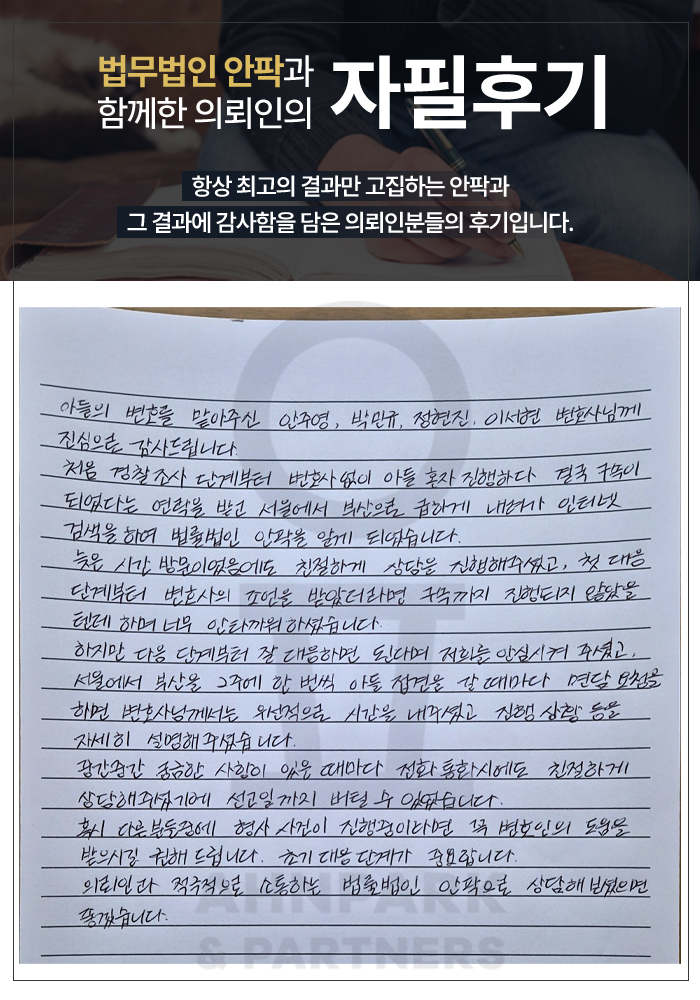 법무법인 안팍과
함께한 의뢰인의
자필후기
항상 최고의 결과만 고집하는 안팍과
그 결과에 감사함을 담은 의뢰인분들의 후기입니다.
아들의 변호를 맡아주신 안주영, 박민규, 정현진, 이서현 변호사님께
진심으로 감사드립니다.
처음 경찰조사 단계부터 변호사 없이 아들 혼자 진행하다 결국 구속이
되었다는 연락을 받고 서울에서 부산으로 급하게 내려가 인터넷
검색을 하여 법률법인 안팍을 알게 되었습니다.
늦은 시간 방문이었음에도 친절하게 상담을 진행해주셨고, 첫 대응
단계부터 변호사의 조언을 받았더라면 구속까지 진행되지 않았을
텐데 하며 너무 안타까워하셨습니다.
하지만 다음 단계부터 잘 대응하면 된다며 저희를 안심시켜 주셨고,
서울에서 부산을 2주에 한 번씩 아들 접견을 갈 때마다 면담 요청을
하면 변호사님께서는 우선적으로 시간을 내주셨고 진행 상황 등을
자세히 설명해 주셨습니다.
중간중간 궁금한 사항이 있을 때마다 전화 통화시에도 친절하게
상담해주셨기에 선고일까지 버틸 수 있었습니다.
혹시 다른분들중에 형사 사건이 진행중이라면 꼭 변호인의 도움을
받으시길 권해 드립니다. 초기 대응 단계가 중요합니다.
의뢰인과 적극적으로 소통하는 법률법인 안팍으로 상담해 보셨으면
좋겠습니다.
AHNPARK
& PARTNERS